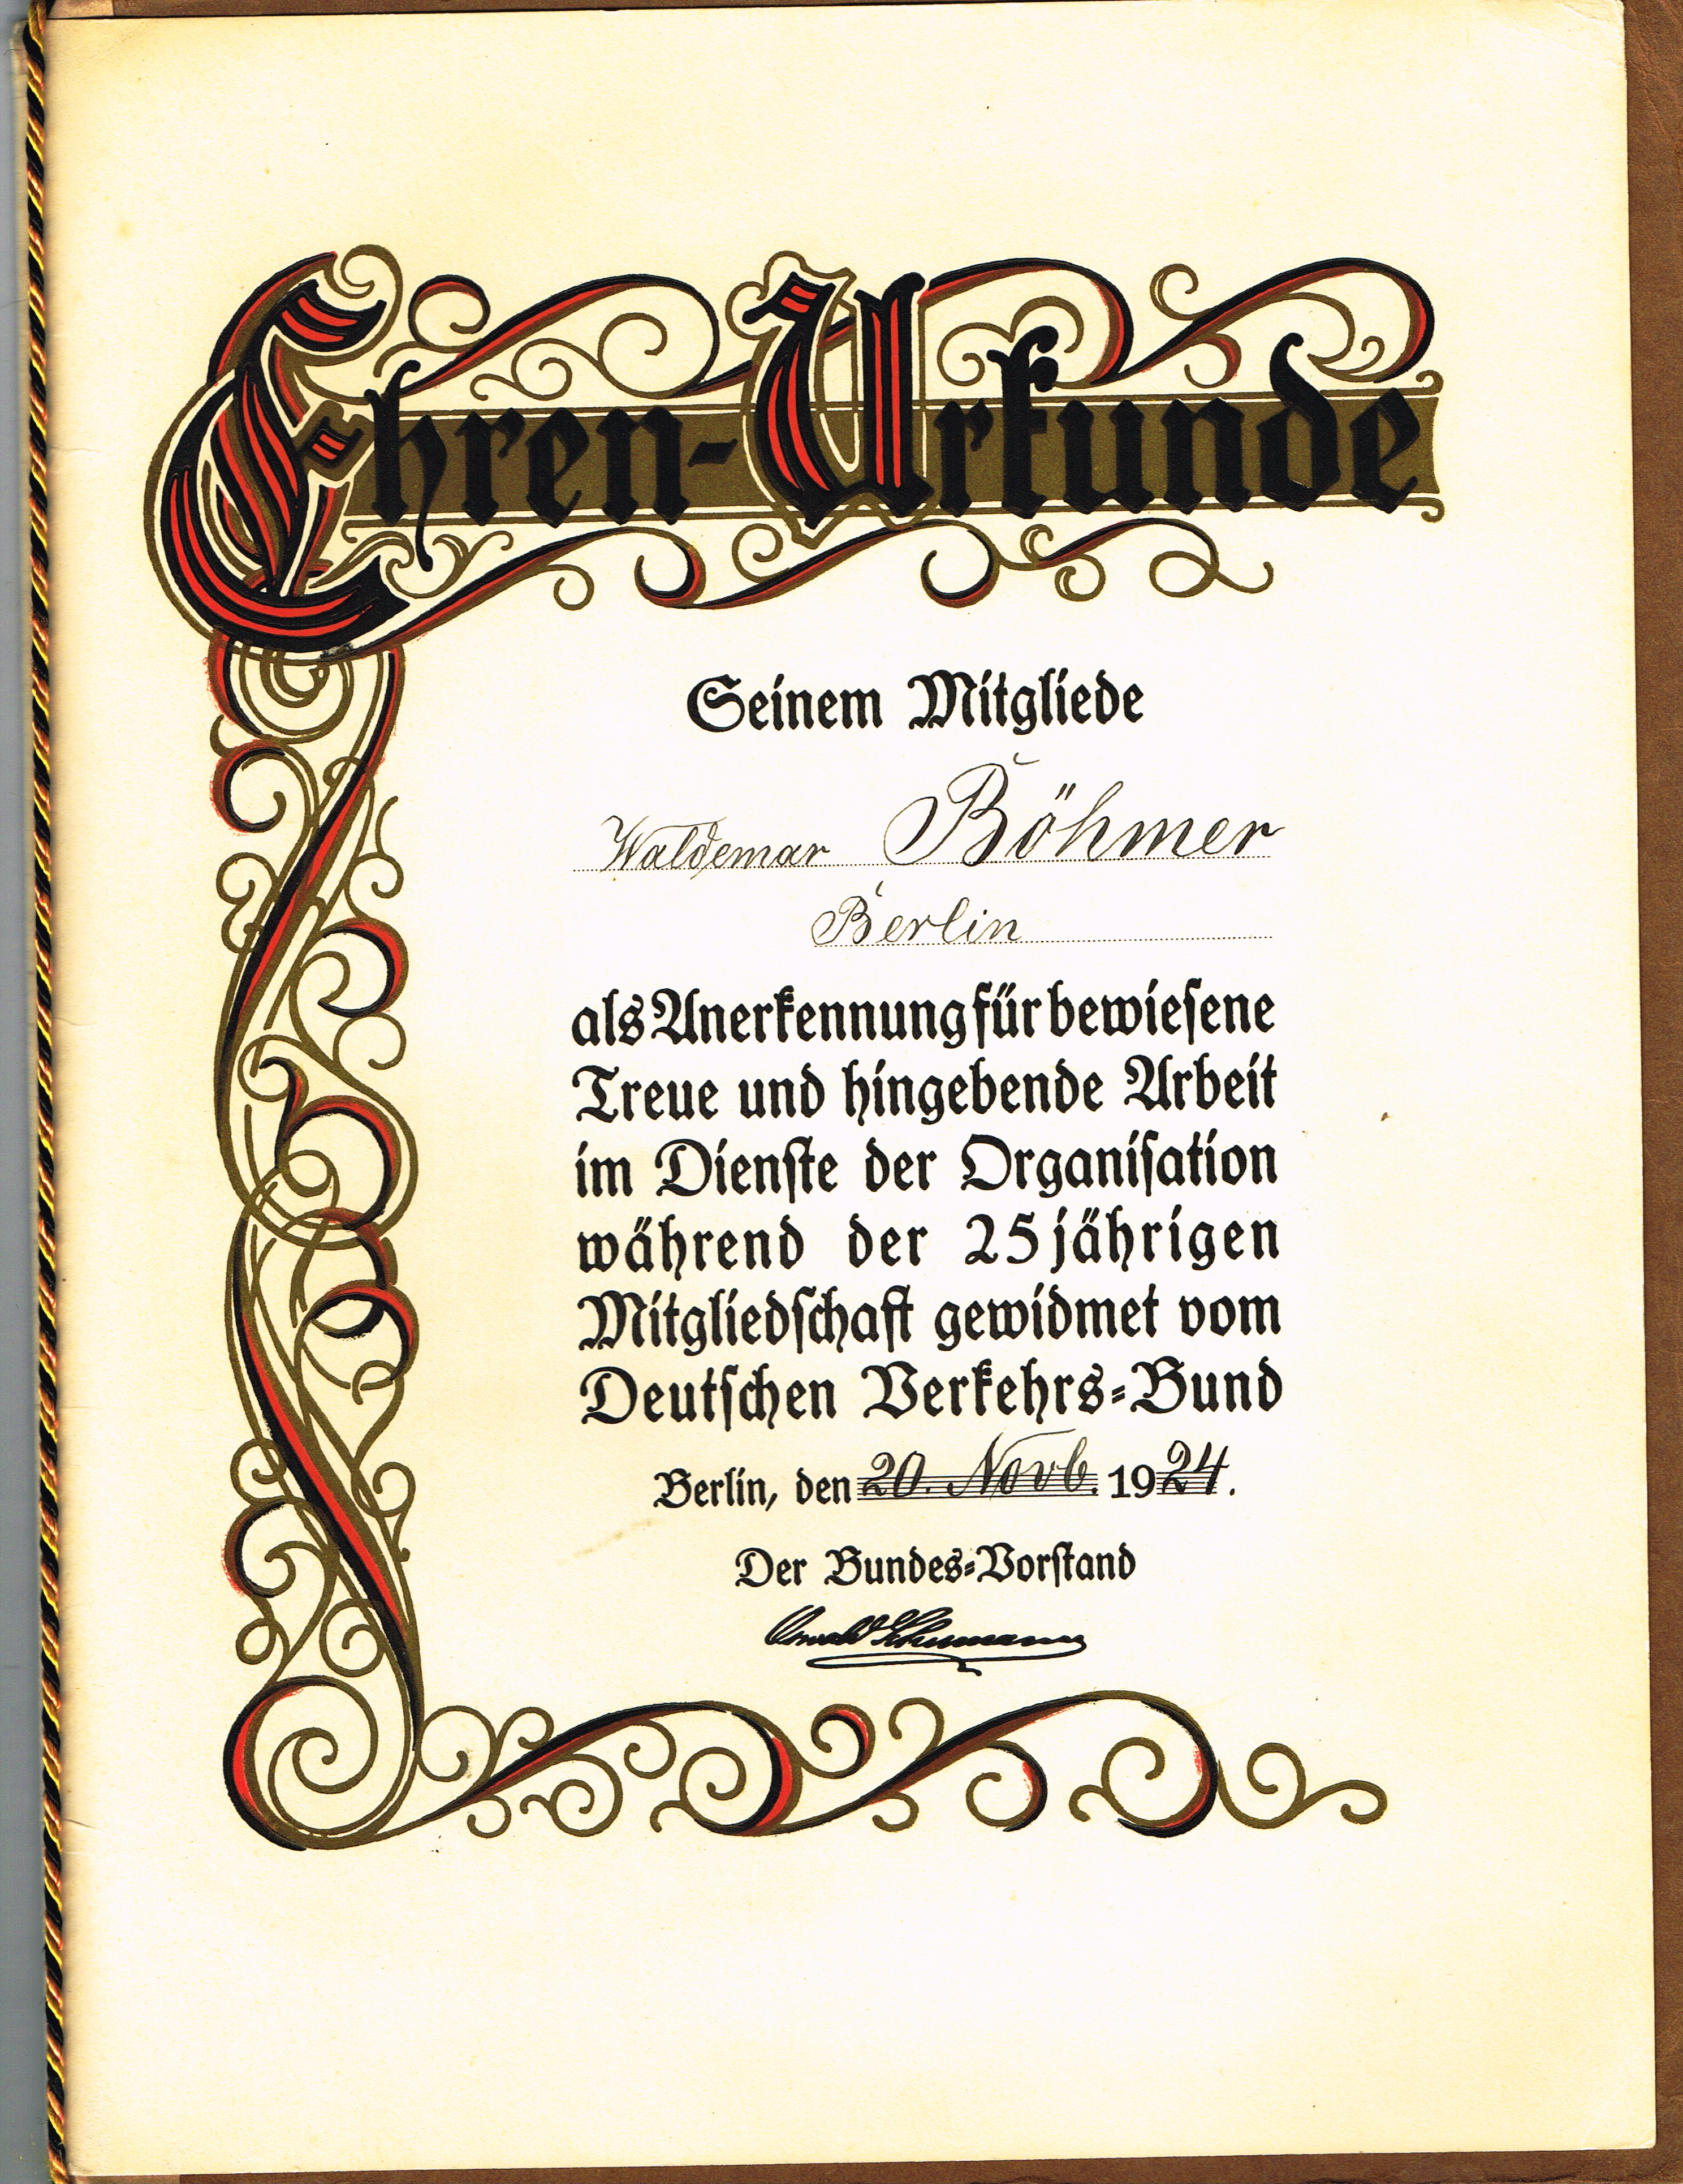 Ehren-Urkunde
Seinem Mitgliede
Waldemar Böhmer
Berlin
als Anerkennung für bewieſene
Treue und hingebende Arbeit
im Dienſte der Organiſation
während der 25jährigen
Mitgliedſchaft gewidmet vom
Deutſchen Verkehrs-Bund
Berlin, den 20. Novb. 1924.
Der Bundes-Vorſtand
Oswald Schumann